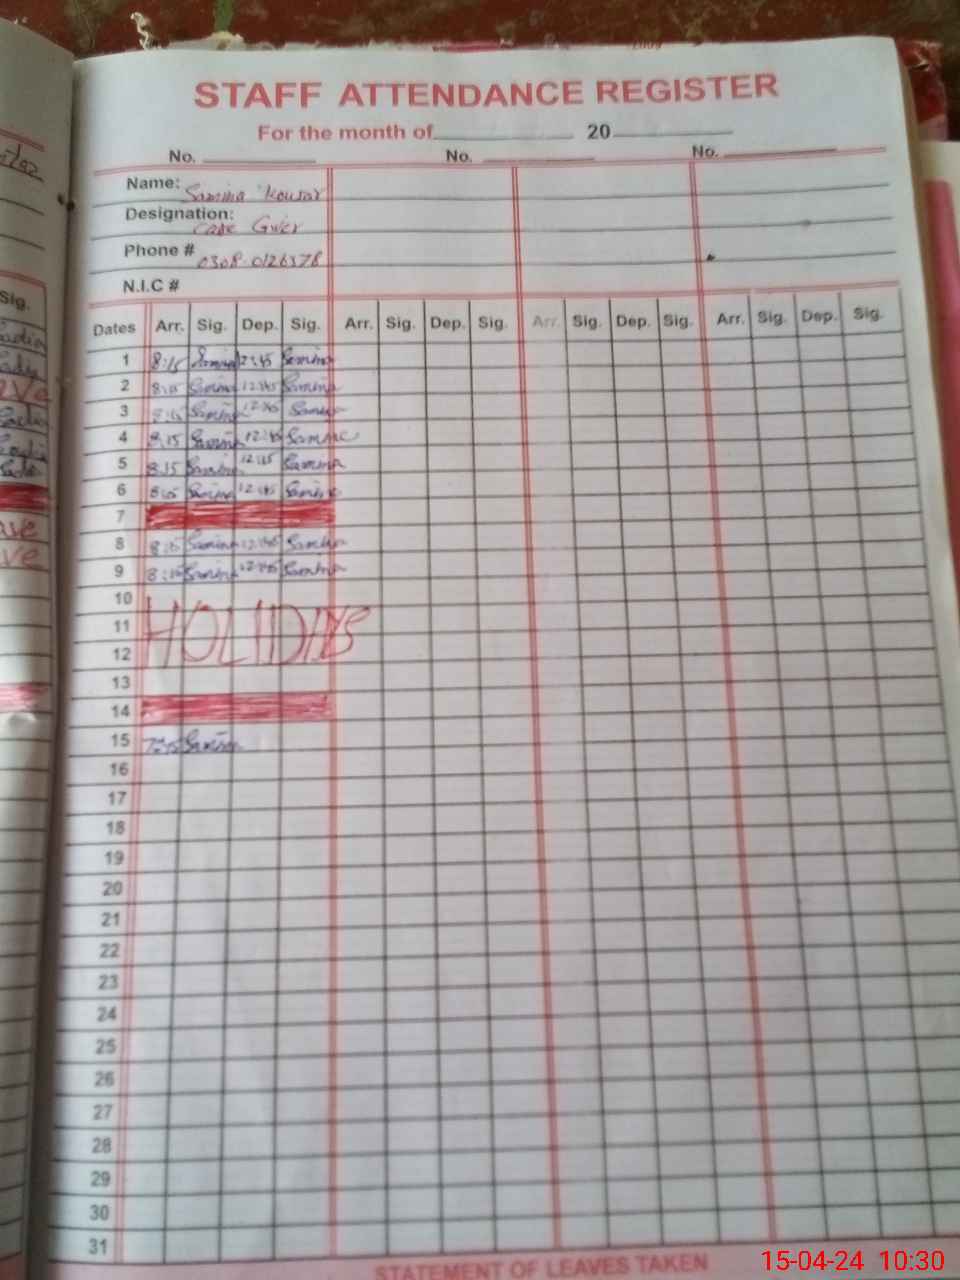 STAFF ATTENDANCE REGISTER
For the month of 20
No. No. No.
Name: Samina Kousar
Designation: Care Giver
Phone # 0308-0126378
N.I.C #
Sig.
Dates Arr. Sig. Dep. Sig. Arr. Sig. Dep. Sig. Arr. Sig. Dep. Sig. Arr. Sig. Dep. Sig.
1 8:15 Samina 12:45 Samina
2 8:15 Samina 12:45 Samina
3 8:15 Samina 12:45 Samina
4 8:15 Samina 12:45 Samina
5 8:15 Samina 12:45 Samina
6 8:15 Samina 12:45 Samina
7
8 8:15 Samina 12:45 Samina
9 8:15 Samina 12:45 Samina
10
11 HOLIDAYS
12
13
14
15 7:45 Samina
16
17
18
19
20
21
22
23
24
25
26
27
28
29
30
31
STATEMENT OF LEAVES TAKEN
15-04-24 10:30